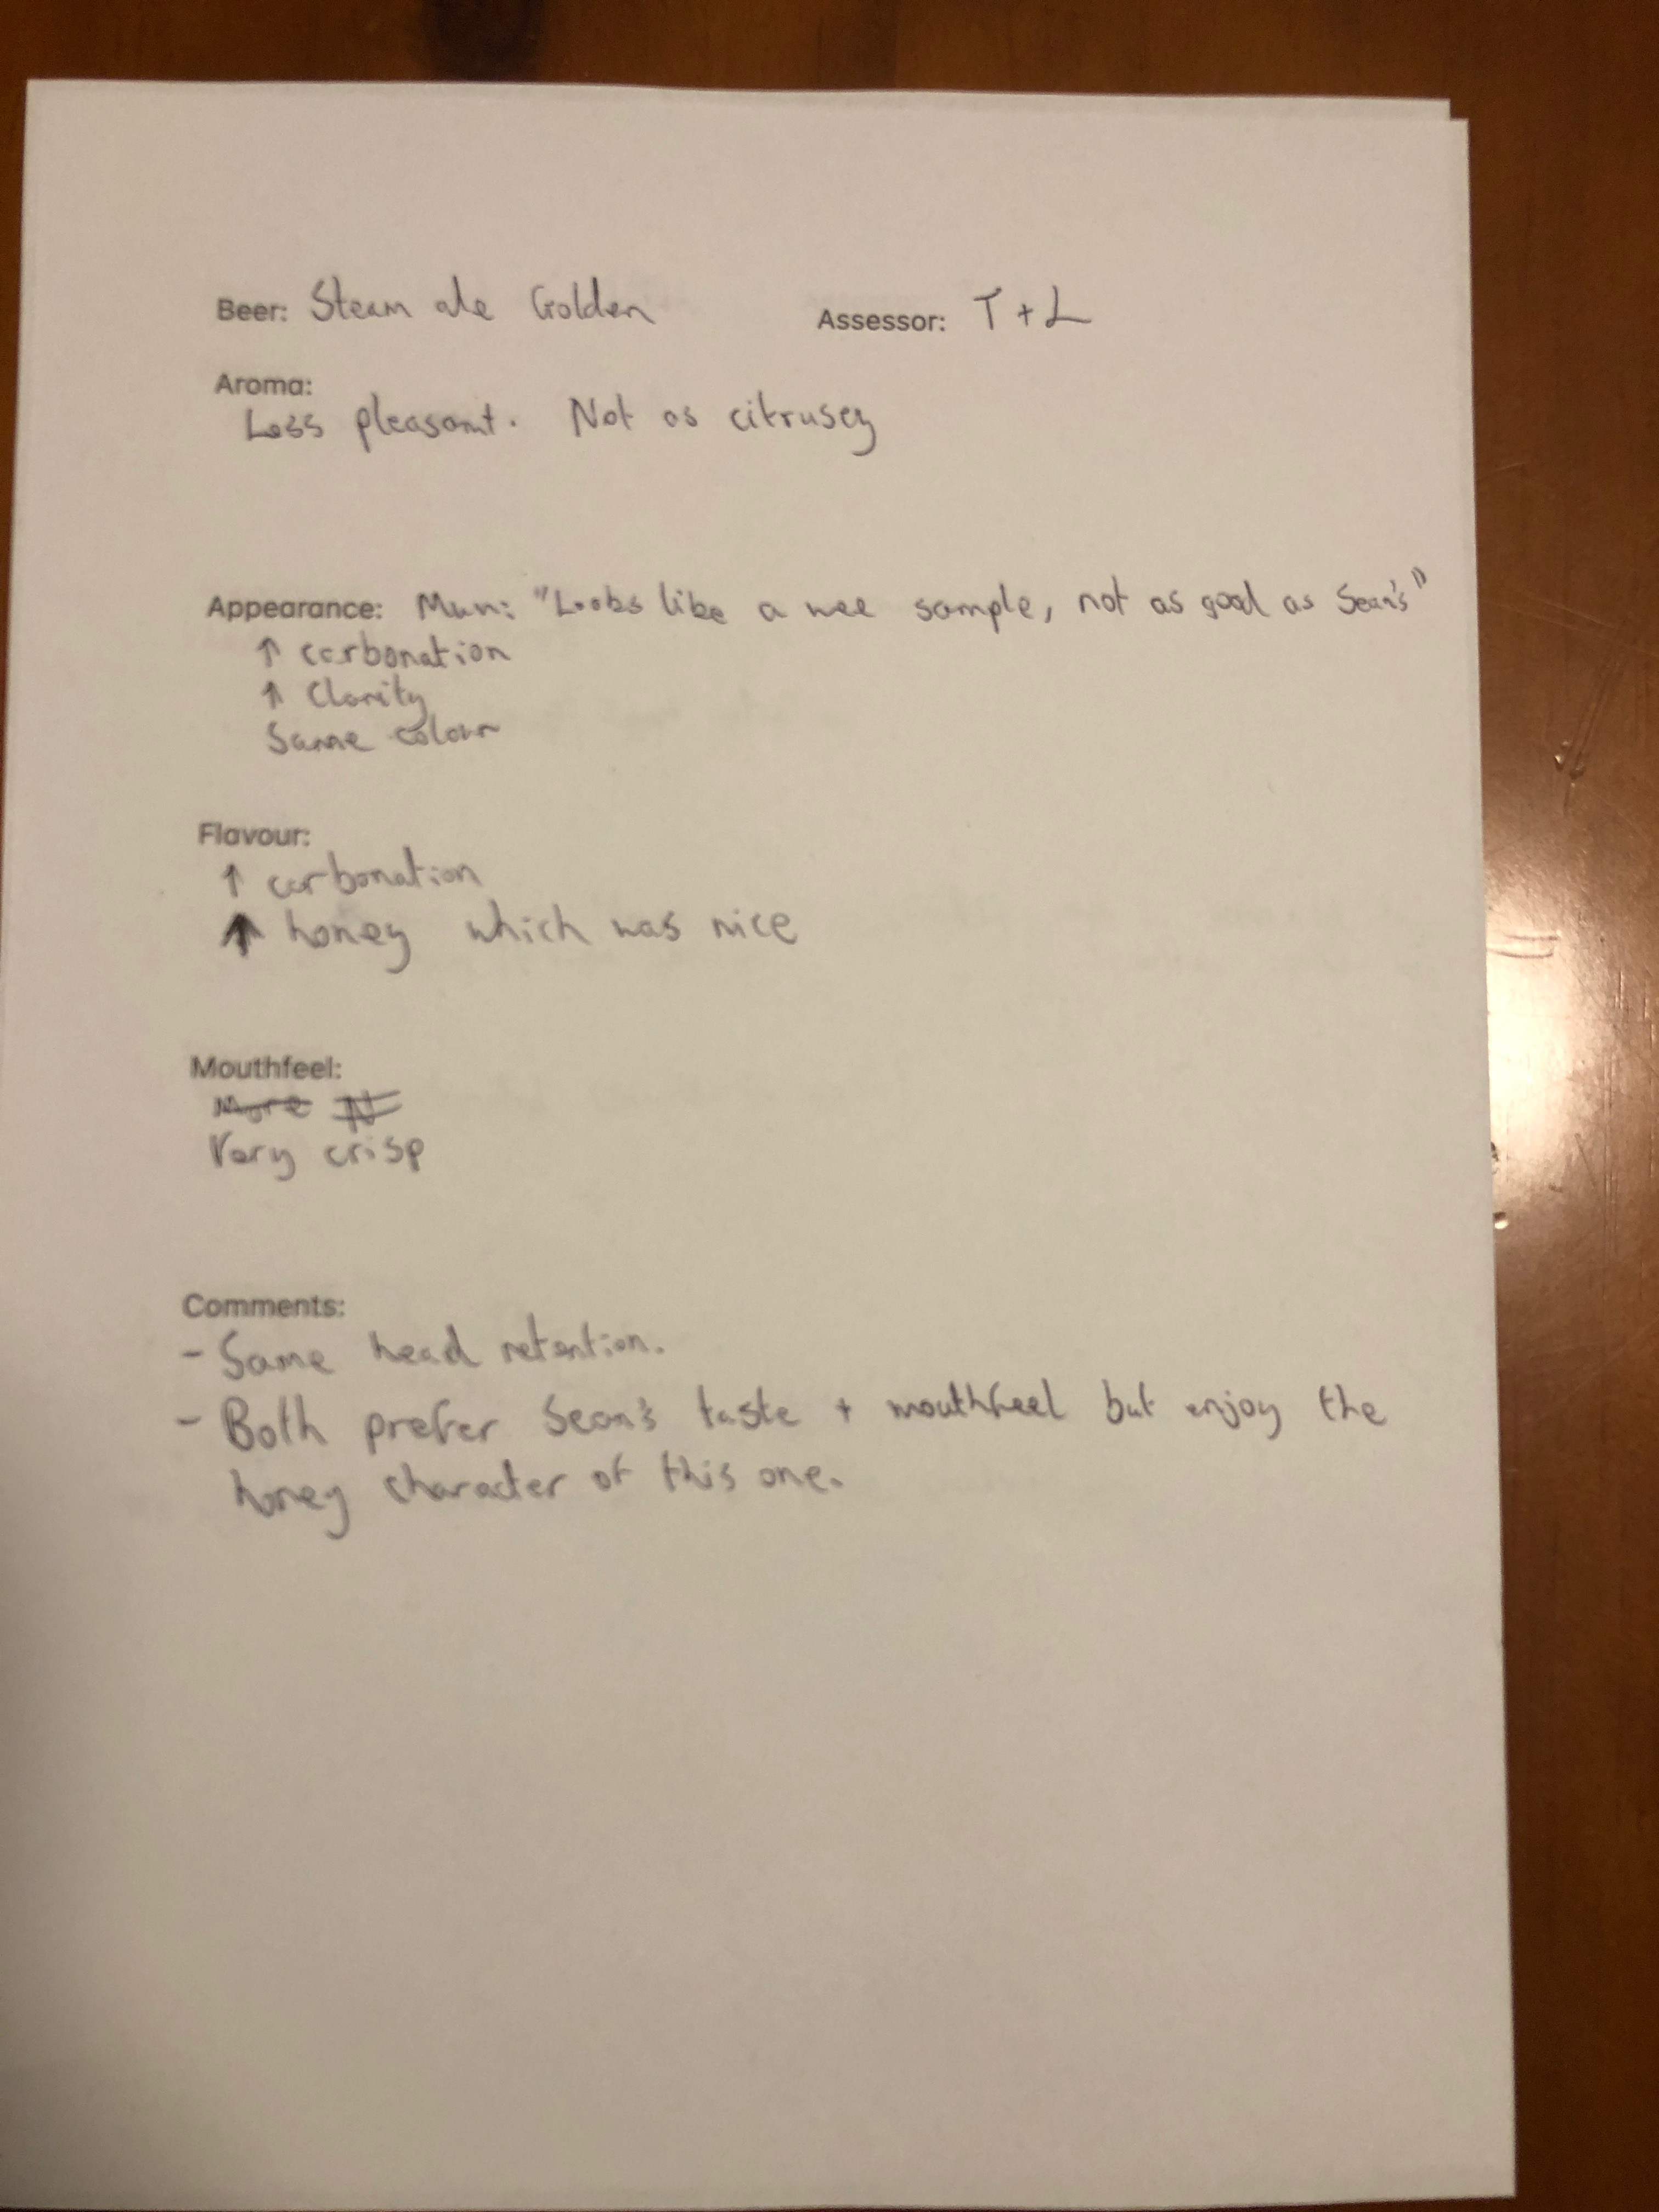 Beer: Steam ale Golden Assessor: T + L
Aroma:
Less pleasant. Not as citrusey
Appearance: Mum: "Looks like a wee sample, not as good as Sean's"
↑ carbonation
↑ Clarity
Same colour
Flavour:
↑ carbonation
↑ honey which was nice
Mouthfeel:
More N
Very crisp
Comments:
- Same head retention.
- Both prefer Sean's taste + mouthfeel but enjoy the
honey character of this one.